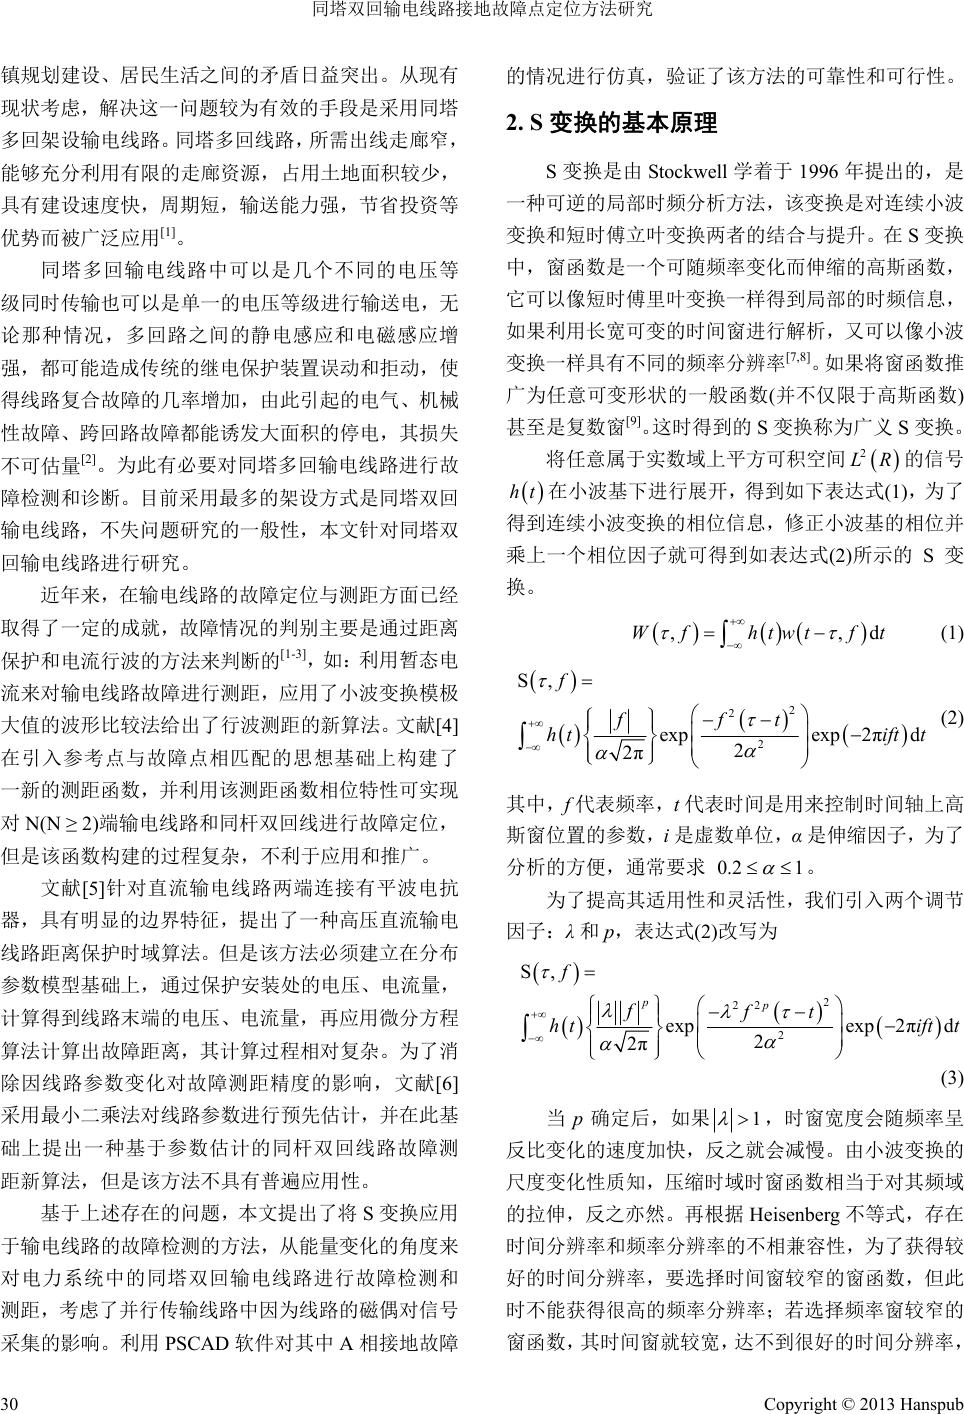 同塔双回输电线路接地故障点定位方法研究
镇规划建设、居民生活之间的矛盾日益突出。从现有
现状考虑，解决这一问题较为有效的手段是采用同塔
多回架设输电线路。同塔多回线路，所需出线走廊窄，
能够充分利用有限的走廊资源，占用土地面积较少，
具有建设速度快，周期短，输送能力强，节省投资等
优势而被广泛应用[1]。
同塔多回输电线路中可以是几个不同的电压等
级同时传输也可以是单一的电压等级进行输送电，无
论那种情况，多回路之间的静电感应和电磁感应增
强，都可能造成传统的继电保护装置误动和拒动，使
得线路复合故障的几率增加，由此引起的电气、机械
性故障、跨回路故障都能诱发大面积的停电，其损失
不可估量[2]。为此有必要对同塔多回输电线路进行故
障检测和诊断。目前采用最多的架设方式是同塔双回
输电线路，不失问题研究的一般性，本文针对同塔双
回输电线路进行研究。
近年来，在输电线路的故障定位与测距方面已经
取得了一定的成就，故障情况的判别主要是通过距离
保护和电流行波的方法来判断的[1-3]，如：利用暂态电
流来对输电线路故障进行测距，应用了小波变换模极
大值的波形比较法给出了行波测距的新算法。文献[4]
在引入参考点与故障点相匹配的思想基础上构建了
一新的测距函数，并利用该测距函数相位特性可实现
对 N(N ≥ 2)端输电线路和同杆双回线进行故障定位，
但是该函数构建的过程复杂，不利于应用和推广。
文献[5]针对直流输电线路两端连接有平波电抗
器，具有明显的边界特征，提出了一种高压直流输电
线路距离保护时域算法。但是该方法必须建立在分布
参数模型基础上，通过保护安装处的电压、电流量，
计算得到线路末端的电压、电流量，再应用微分方程
算法计算出故障距离，其计算过程相对复杂。为了消
除因线路参数变化对故障测距精度的影响，文献[6]
采用最小二乘法对线路参数进行预先估计，并在此基
础上提出一种基于参数估计的同杆双回线路故障测
距新算法，但是该方法不具有普遍应用性。
基于上述存在的问题，本文提出了将 S 变换应用
于输电线路的故障检测的方法，从能量变化的角度来
对电力系统中的同塔双回输电线路进行故障检测和
测距，考虑了并行传输线路中因为线路的磁偶对信号
采集的影响。利用 PSCAD 软件对其中 A 相接地故障
的情况进行仿真，验证了该方法的可靠性和可行性。
2. S 变换的基本原理
S 变换是由 Stockwell 学着于 1996 年提出的，是
一种可逆的局部时频分析方法，该变换是对连续小波
变换和短时傅立叶变换两者的结合与提升。在 S 变换
中，窗函数是一个可随频率变化而伸缩的高斯函数，
它可以像短时傅里叶变换一样得到局部的时频信息，
如果利用长宽可变的时间窗进行解析，又可以像小波
变换一样具有不同的频率分辨率[7,8]。如果将窗函数推
广为任意可变形状的一般函数(并不仅限于高斯函数)
甚至是复数窗[9]。这时得到的 S 变换称为广义 S 变换。
将任意属于实数域上平方可积空间 L²(R) 的信号
h(t) 在小波基下进行展开，得到如下表达式(1)，为了
得到连续小波变换的相位信息，修正小波基的相位并
乘上一个相位因子就可得到如表达式(2)所示的 S 变
换。
W(τ, f) = ∫_{−∞}^{+∞} h(t)w(t−τ, f)dt (1)
S(τ, f) =
∫_{−∞}^{+∞} h(t){|f| / (α√2π)} exp(−f²(τ−t)² / 2α²) exp(−2πift)dt (2)
其中，f 代表频率，t 代表时间是用来控制时间轴上高
斯窗位置的参数，i 是虚数单位，α 是伸缩因子，为了
分析的方便，通常要求 0.2 ≤ α ≤ 1。
为了提高其适用性和灵活性，我们引入两个调节
因子：λ 和 p，表达式(2)改写为
S(τ, f) =
∫_{−∞}^{+∞} h(t){|λ||f|^p / (α√2π)} exp(−λ²f^{2p}(τ−t)² / 2α²) exp(−2πift)dt
(3)
当 p 确定后，如果 |λ| > 1，时窗宽度会随频率呈
反比变化的速度加快，反之就会减慢。由小波变换的
尺度变化性质知，压缩时域时窗函数相当于对其频域
的拉伸，反之亦然。再根据 Heisenberg 不等式，存在
时间分辨率和频率分辨率的不相兼容性，为了获得较
好的时间分辨率，要选择时间窗较窄的窗函数，但此
时不能获得很高的频率分辨率；若选择频率窗较窄的
窗函数，其时间窗就较宽，达不到很好的时间分辨率，
30
Copyright © 2013 Hanspub